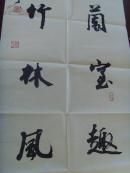 蘭室趣
竹林風